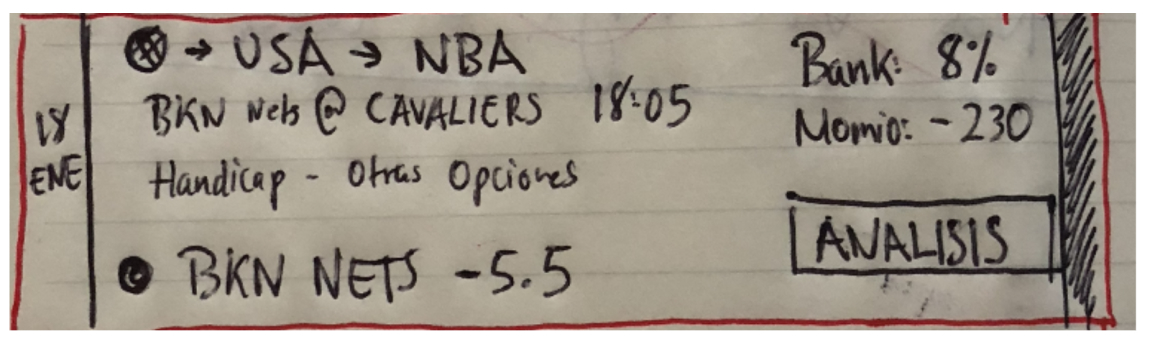 18
ENE
→ USA → NBA
BKN Nets @ CAVALIERS 18:05
Handicap - Otras Opciones
BKN NETS -5.5
Bank: 8%
Momio: -230
ANALISIS